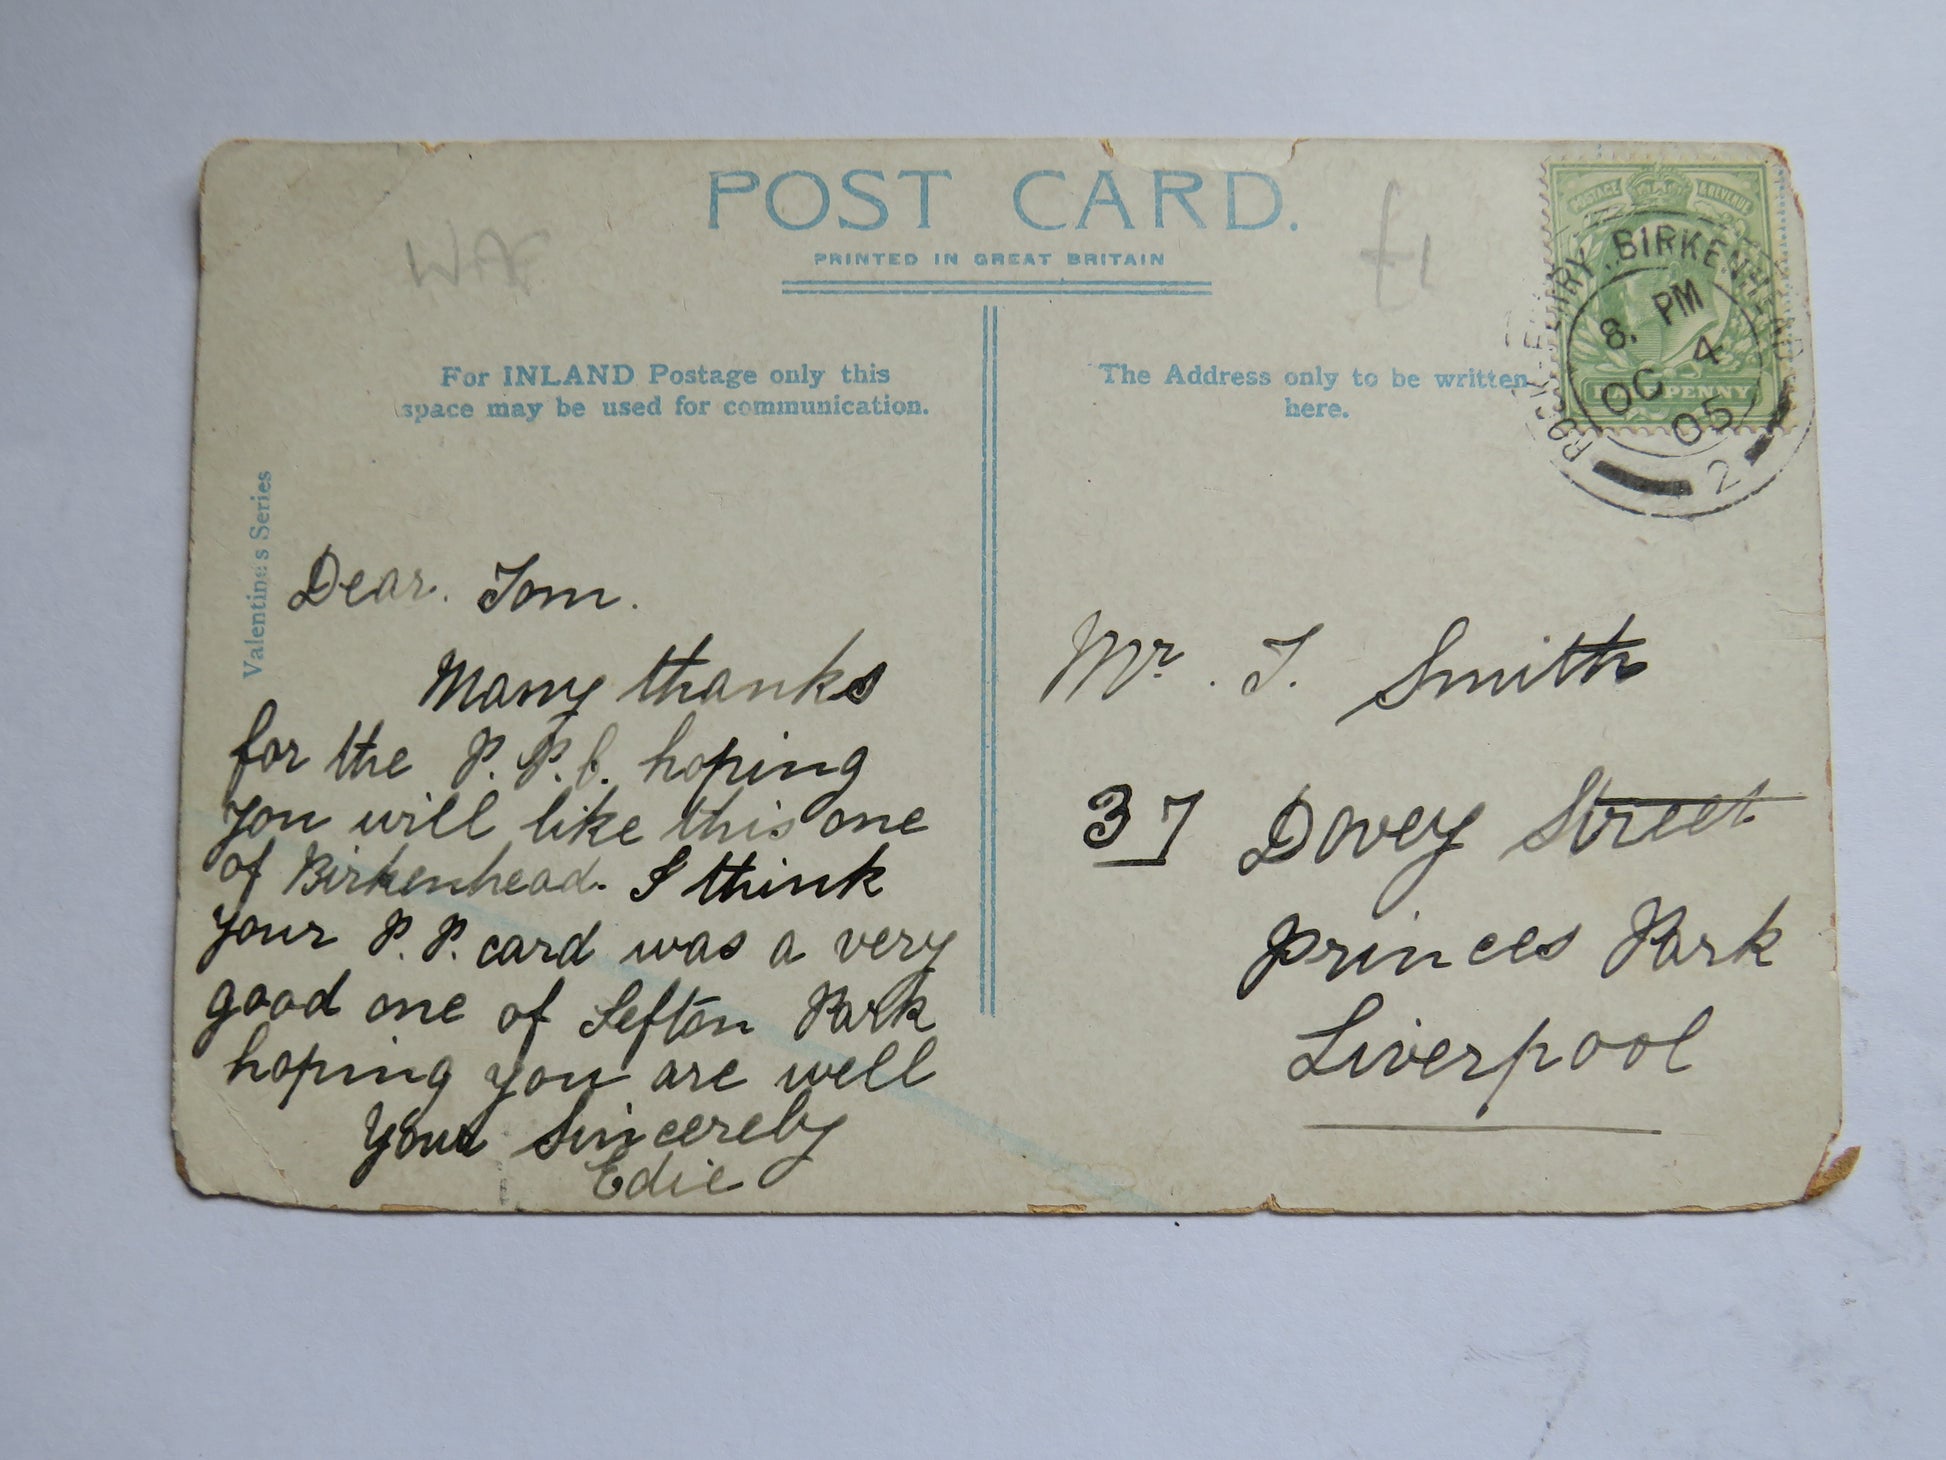 POST CARD.
PRINTED IN GREAT BRITAIN
£1
For INLAND Postage only this
space may be used for communication.
The Address only to be written
here.
Valentines Series
POSTAGE & REVENUE
HALFPENNY
ROCK-FERRY. BIRKENHEAD
8. PM
OC 4
05
2
Dear. Tom.
Many thanks
for the P. P. C. hoping
you will like this one
of Birkenhead. I think
your P. P. card was a very
good one of Sefton Park
hoping you are well
Your Sincereby
Edie
Mr. T. Smith
37 Dovey Street
Princes Park
Liverpool